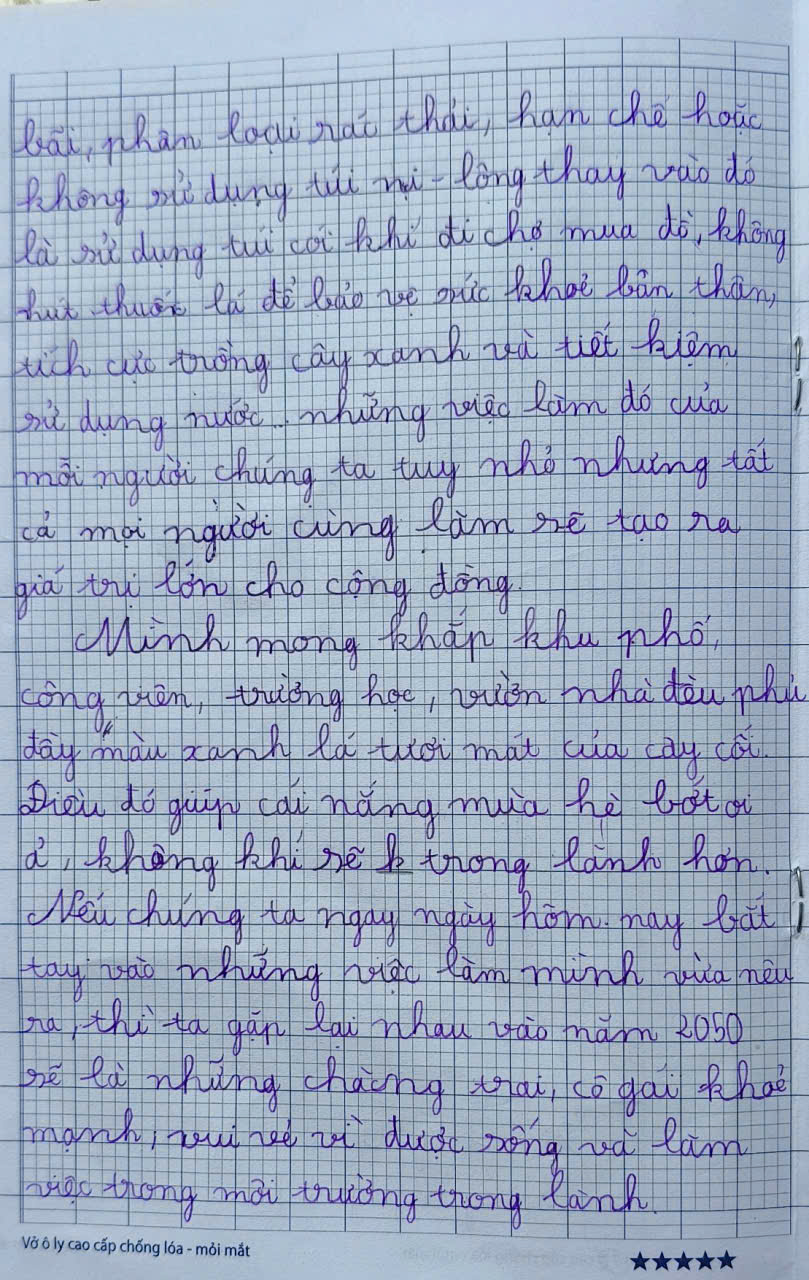 bãi, phân loại rác thải, hạn chế hoặc
không sử dụng túi ni-lông thay vào đó
là sử dụng túi cói khi đi chợ mua đồ, không
hút thuốc lá để bảo vệ sức khoẻ bản thân,
tích cực trồng cây xanh và tiết kiệm
sử dụng nước... những việc làm đó của
mỗi người chúng ta tuy nhỏ nhưng tất
cả mọi người cùng làm sẽ tạo ra
giá trị lớn cho cộng đồng.
Mình mong khắp khu phố,
công viên, trường học, vườn nhà đều phủ
đầy màu xanh lá tươi mát của cây cối.
Điều đó giúp cái nắng mùa hè bớt oi
ả, không khí sẽ trong lành hơn.
Nếu chúng ta ngay ngày hôm nay bắt
tay vào những việc làm mình vừa nêu
ra, thì ta gặp lại nhau vào năm 2050
sẽ là những chàng trai, cô gái khoẻ
mạnh, vui vẻ vì được sống và làm
việc trong môi trường trong lành.
Vở ô ly cao cấp chống lóa - mỏi mắt